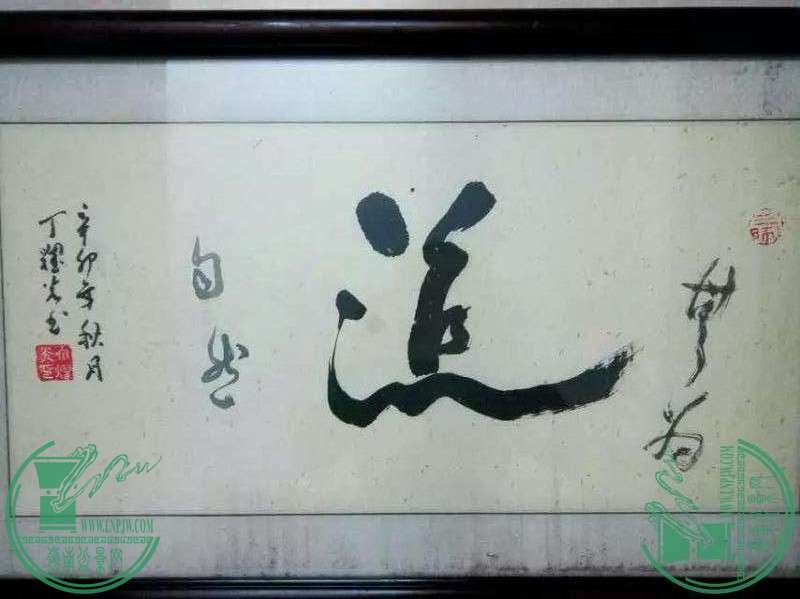 無為
道
自然
辛卯年秋月
丁耀光书
WWW.CNPJW.COM
WWW.CNPJW.COM